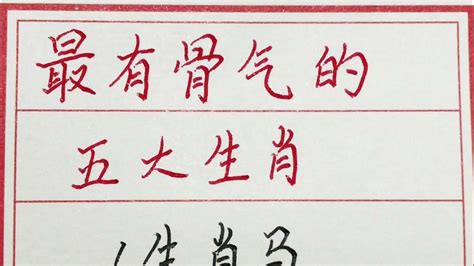 最有骨气的
五大生肖
1生肖马